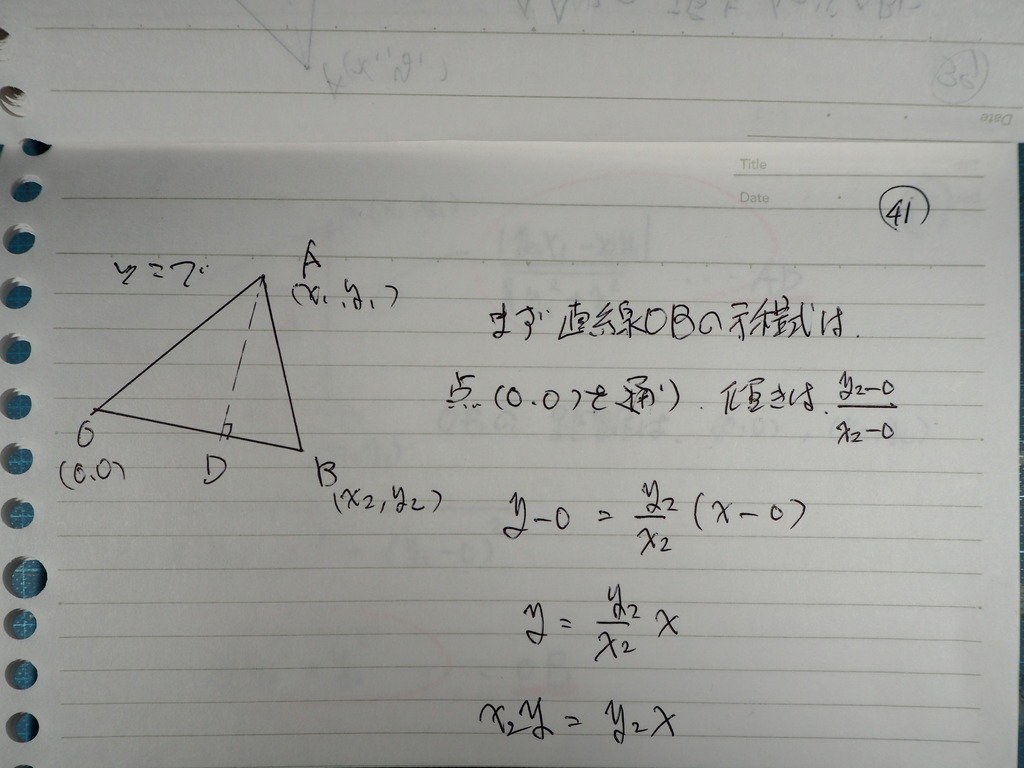 Date
Title
Date
41
そこで
A
(x₁, y₁)
O
(0.0)
D
B
(x₂, y₂)
まず 直線OBの方程式は.
点(0.0)を通り. 傾きは. y₂-0/x₂-0
y-0 = y₂/x₂ (x-0)
y = y₂/x₂ x
x₂y = y₂x